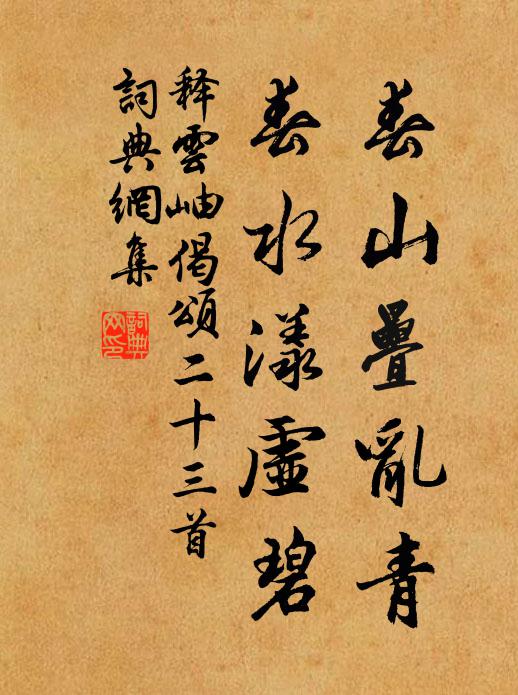 春山疊亂青
春水漾虛碧
釋雲岫偈頌二十三首
詞典網集
詞典網印